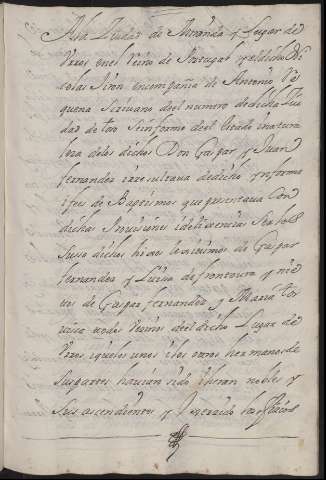 Ala Ciudad de Miranda y Lugar de
en el Reino de Portugal y el dicho Ni
colas Giron en compañia de Antonio Re
quena Escrivano del numero de dicha Ciu
dad de toro Seinformo del estado inatura
leza delos dichos Don Gaspar y Juan
fernandez iresultava de dicho ynforme
i fees de Baptismos que presentava con
dichas Provisiones idelixencias ser los
Suso dichos hixos lexitimos de Gaspar
fernandez y Luisa de frontoura y nie
tos de Gaspar fernandez y Maria
vecinos del dicho Lugar de
iquelos unos ilos otros hermanos de
Suspartes havian sido iheran nobles y
Sus ascendientes y